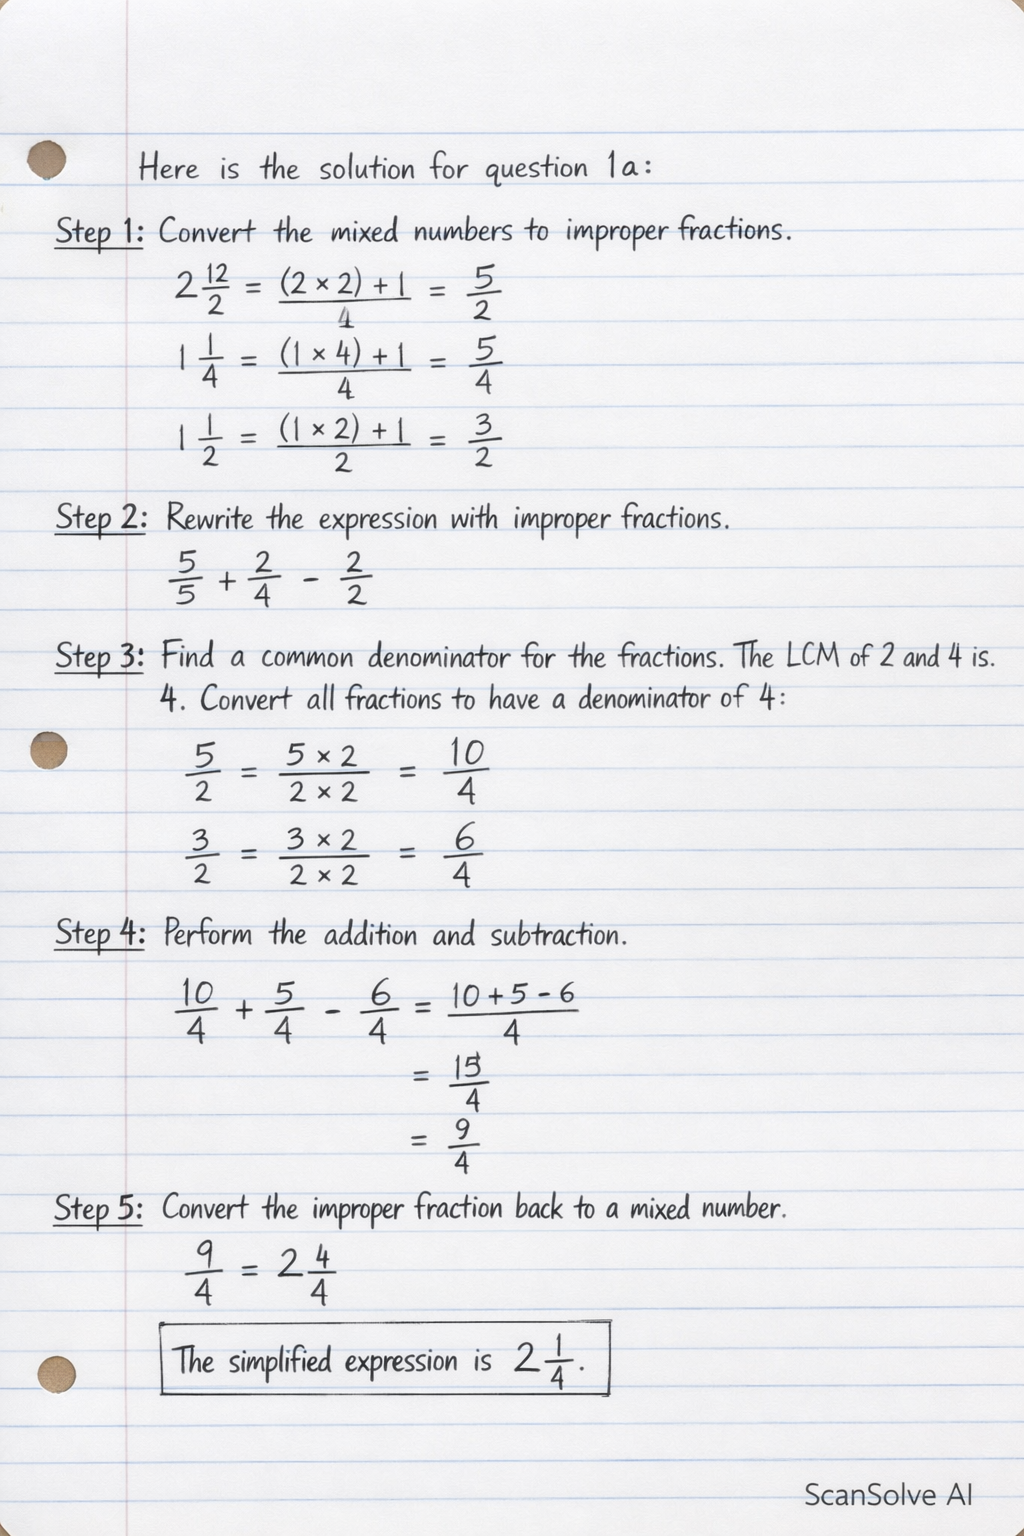 Here is the solution for question 1a:
Step 1: Convert the mixed numbers to improper fractions.
2 12/2 = (2 × 2) + 1 / 4 = 5/2
1 1/4 = (1 × 4) + 1 / 4 = 5/4
1 1/2 = (1 × 2) + 1 / 2 = 3/2
Step 2: Rewrite the expression with improper fractions.
5/5 + 2/4 - 2/2
Step 3: Find a common denominator for the fractions. The LCM of 2 and 4 is.
4. Convert all fractions to have a denominator of 4:
5/2 = 5 × 2 / 2 × 2 = 10/4
3/2 = 3 × 2 / 2 × 2 = 6/4
Step 4: Perform the addition and subtraction.
10/4 + 5/4 - 6/4 = 10 + 5 - 6 / 4
= 15/4
= 9/4
Step 5: Convert the improper fraction back to a mixed number.
9/4 = 2 4/4
The simplified expression is 2 1/4.
ScanSolve AI